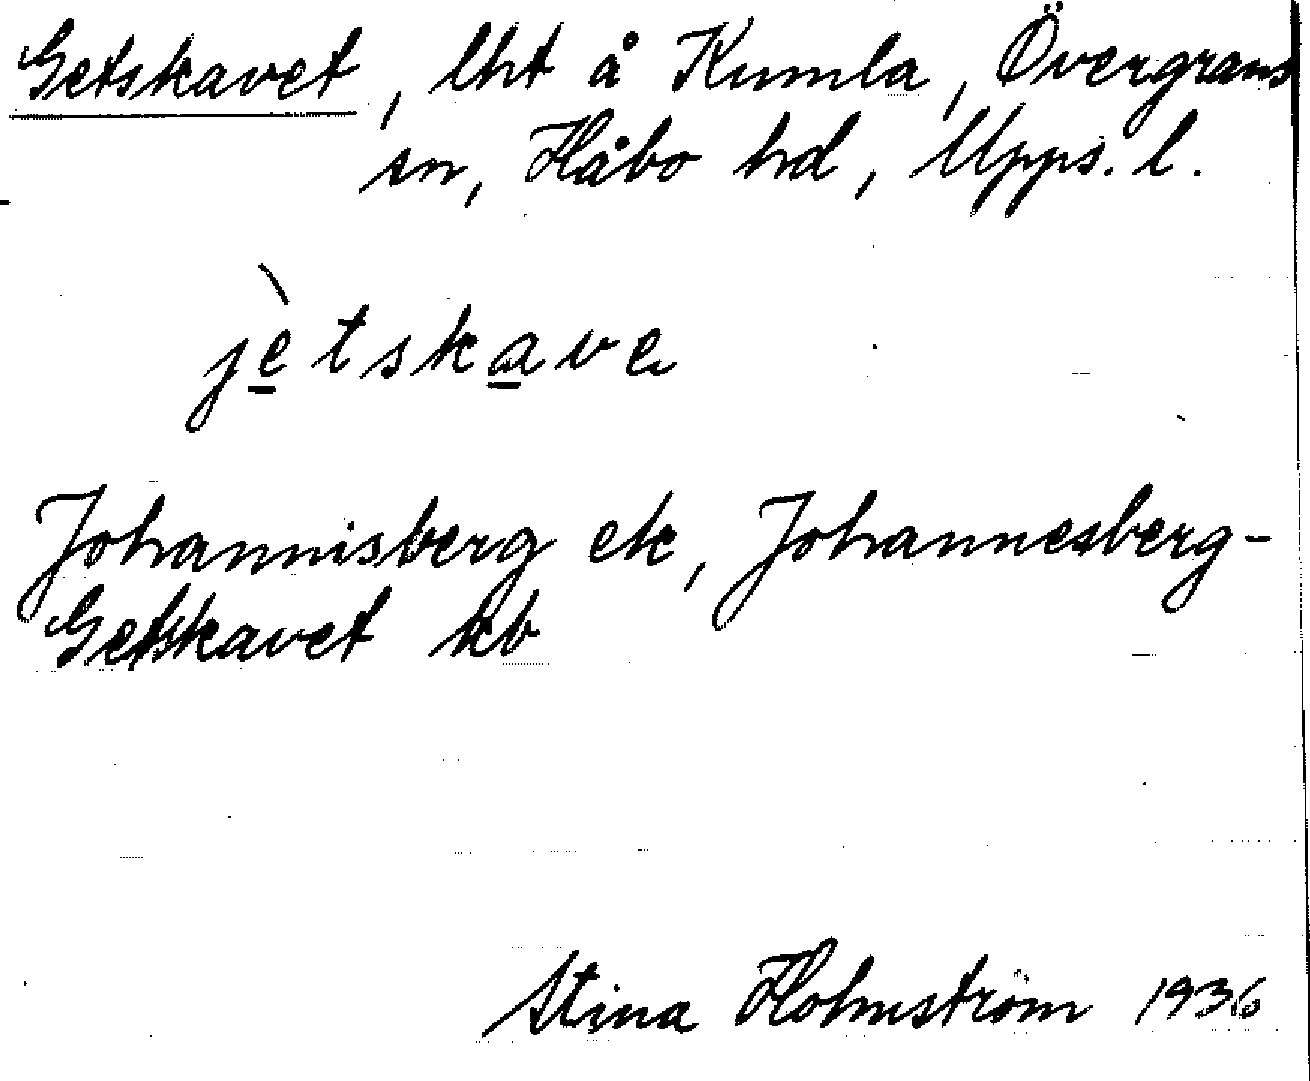 Getskavet, lht å Kumla, Övergrans
sn, Håbo hd, Upps. l.
jètskave
Johannisberg ek, Johannesberg-
Getskavet kb
Stina Holmström 1936